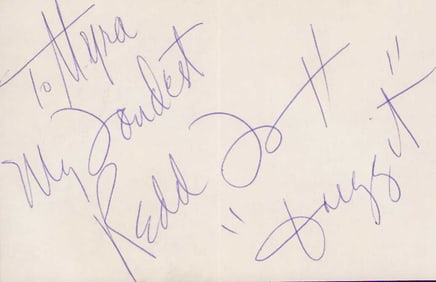 To Myra
My Fondest
Redd Foxx
"Dagg it"